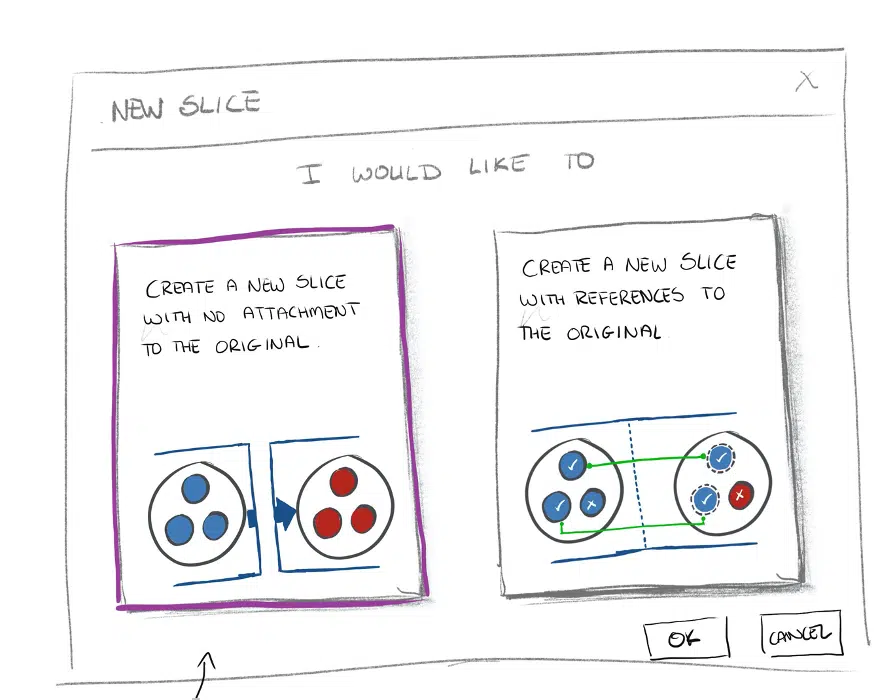 NEW SLICE
X
I WOULD LIKE TO
CREATE A NEW SLICE
WITH NO ATTACHMENT
TO THE ORIGINAL.
CREATE A NEW SLICE
WITH REFERENCES TO
THE ORIGINAL
OK
CANCEL